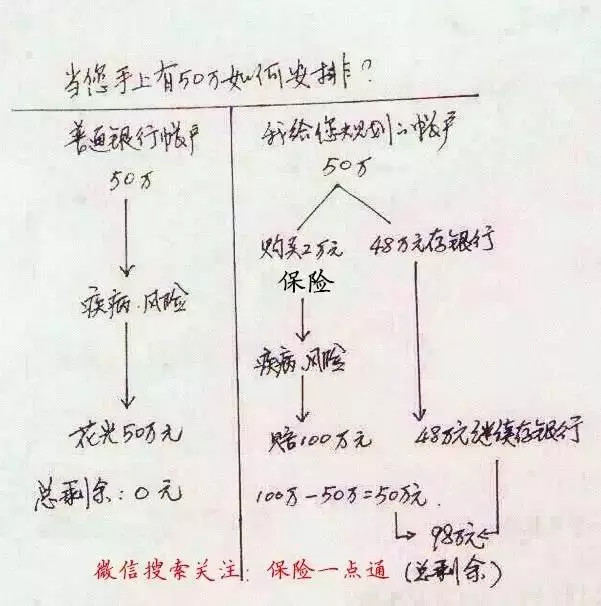 当您手上有50万如何安排?
普通银行帐户
50万
疾病.风险
花光50万元
总剩余:0元
我给您规划的帐户
50万
购买2万元
保险
疾病.风险
赔100万元
100万-50万=50万元.
48万元存银行
48万元继续存银行
98万元
(总剩余)
微信搜索关注:保险一点通